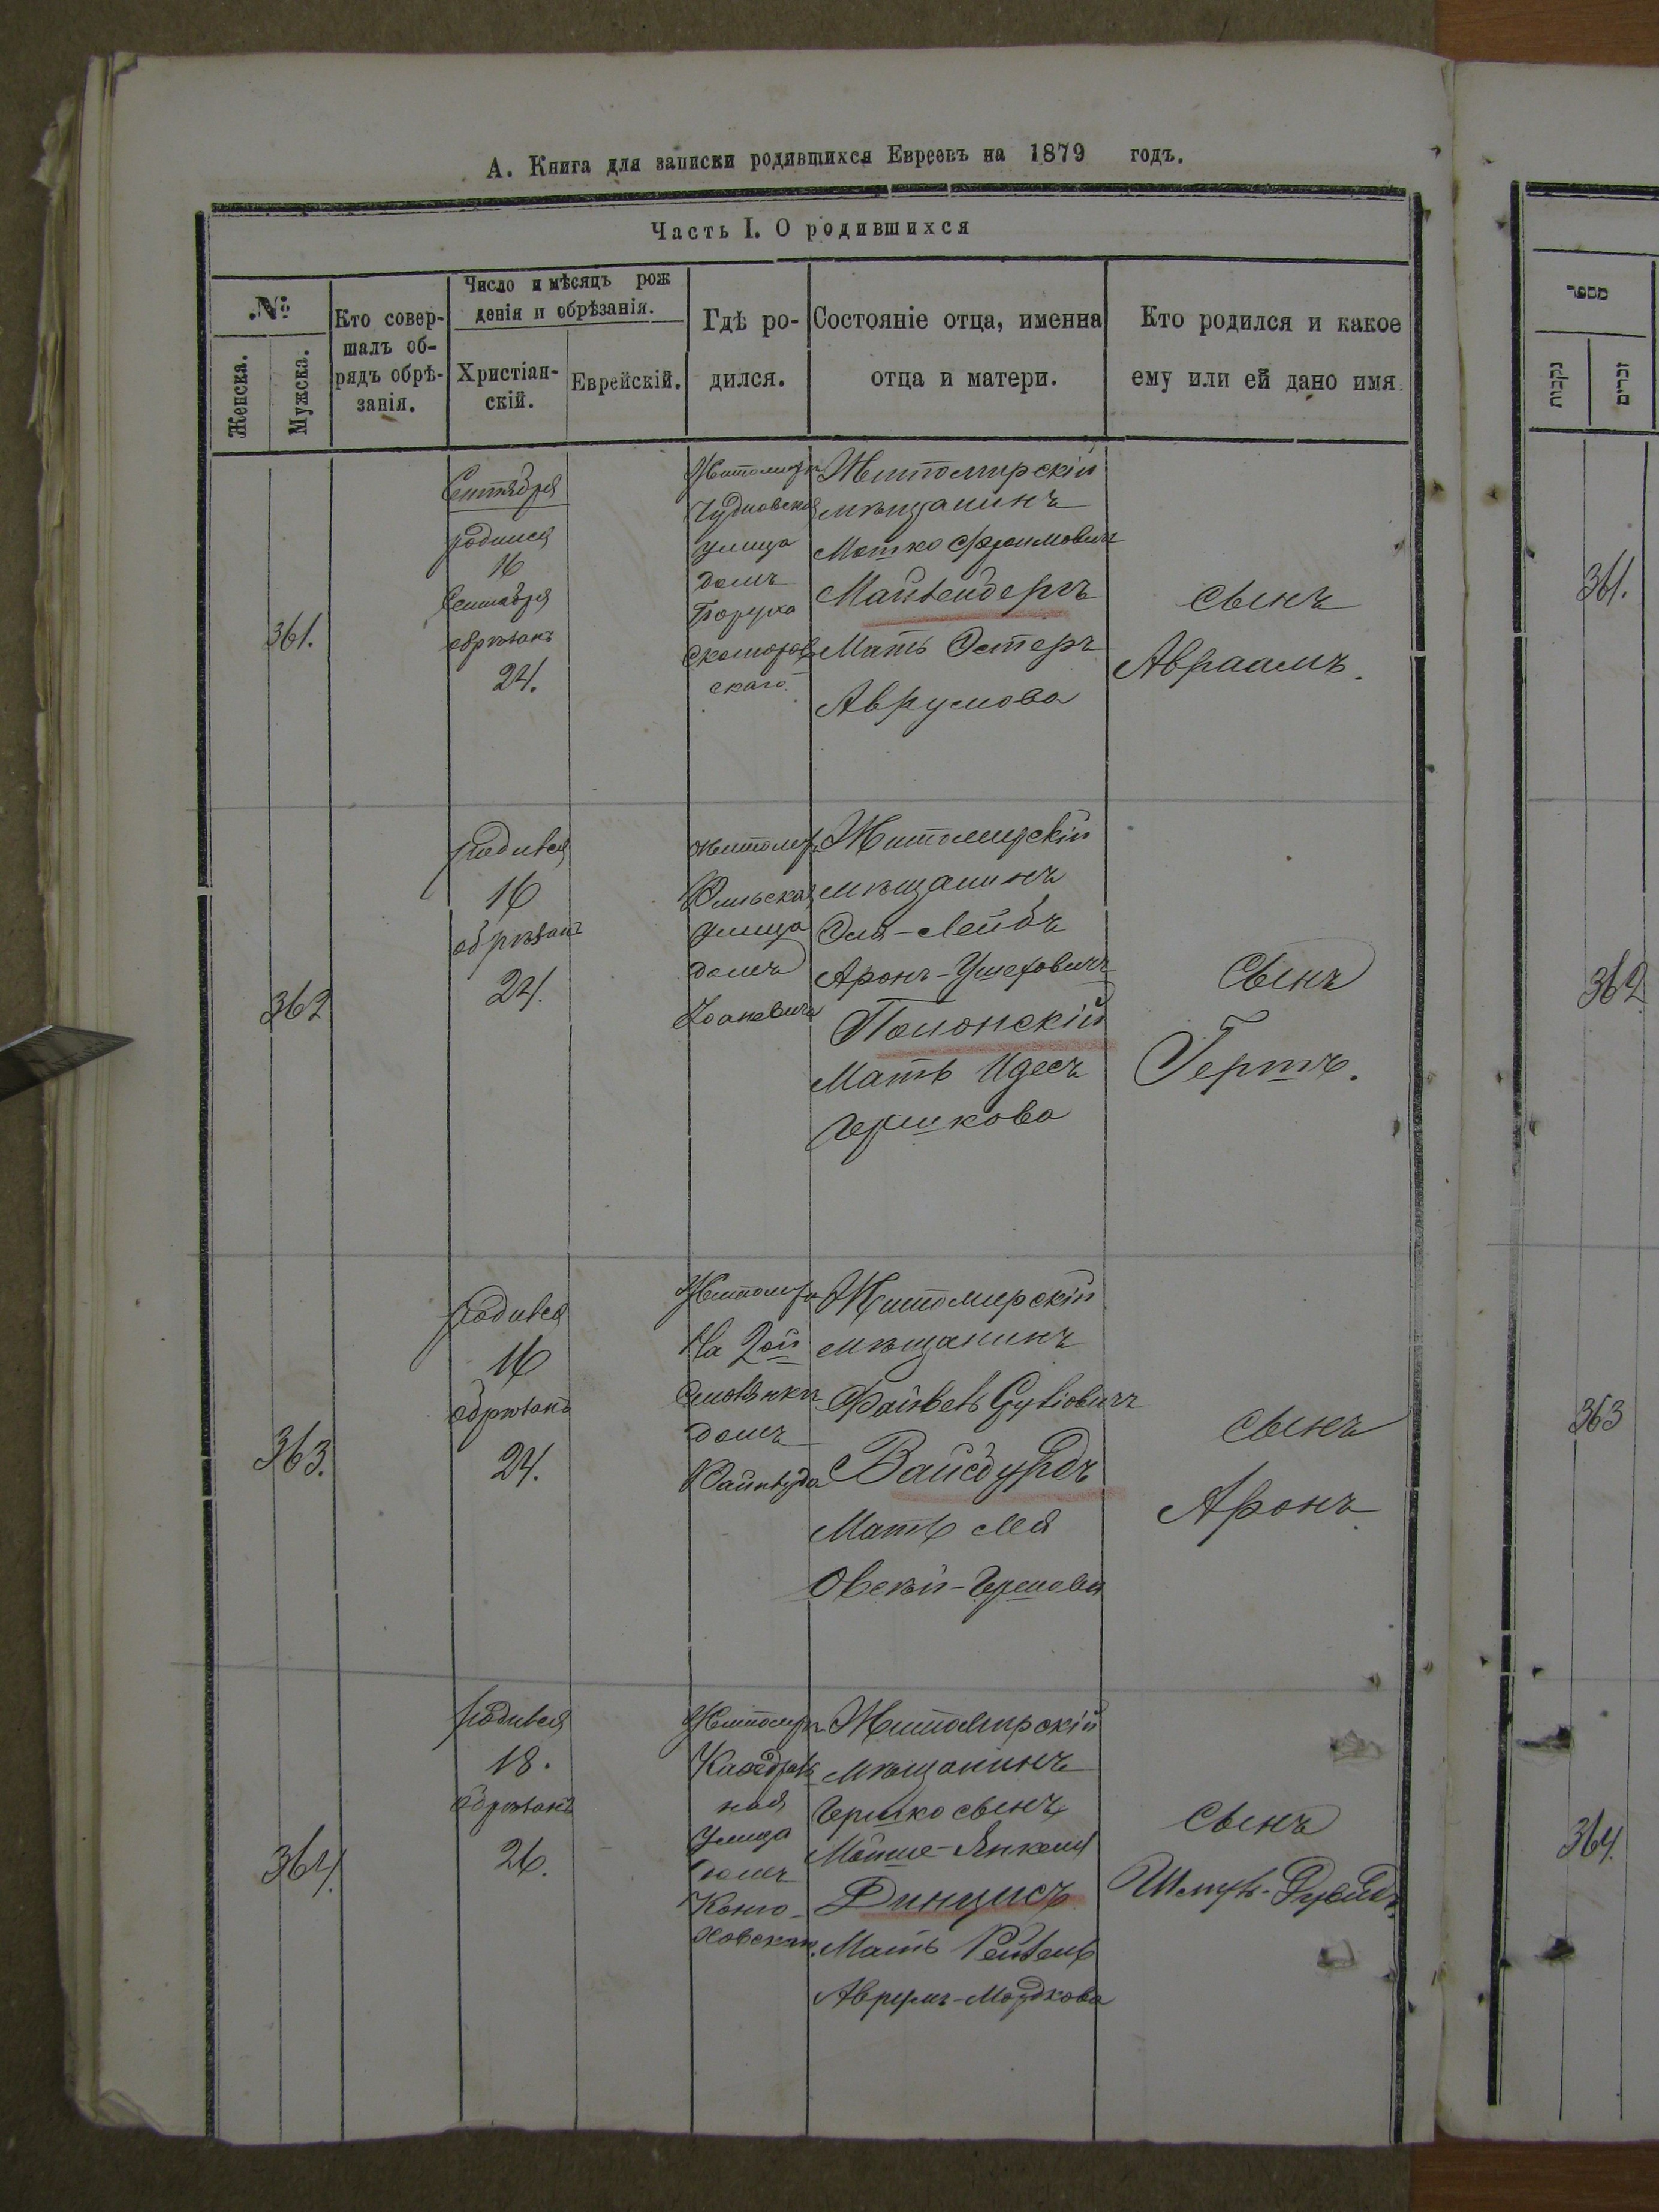 А. Книга для записки родившихся Евреевъ на 1879 годъ.
Часть I. О родившихся
№
Женска.
Мужска.
Кто совер-
шалъ об-
рядъ обрѣ-
занія.
Число и мѣсяцъ рож
денія и обрѣзанія.
Христіан-
скій.
Еврейскій.
Гдѣ ро-
дился.
Состояніе отца, именна
отца и матери.
Кто родился и какое
ему или ей дано имя.
361.
Сентября
родился
16
Сентября
обрѣзанъ
24.
Житомиръ
Чудновская
улица
домъ
ского
Житомирскій
мѣщанинъ
Мошко
Мать Эстеръ
Аврумова
сынъ
Авраамъ.
362
родился
16
обрѣзанъ
24.
Житомиръ
улица
домъ
Житомирскій
мѣщанинъ
Эля-Лейбъ
Аронъ-Ушеровичъ
Полонскій
Мать Идесъ
Гершкова
Сынъ
Гершъ.
363.
родился
16
обрѣзанъ
24.
Житомиръ
На 2ой
домъ
Житомирскій
мѣщанинъ
Файвель
Вайсбурдъ
Мать Лея
Овсѣй-Гершова
сынъ
Аронъ
364.
родился
18.
обрѣзанъ
26.
Житомиръ
Каѳедраль
ная
улица
домъ
Житомирскій
мѣщанинъ
Гершко сынъ
Мойше-Янкеля
Динцисъ
Мать Рейзель
Аврумъ-Мордкова
сынъ
מספר
נקבות
זכרים
361.
362
363
364.